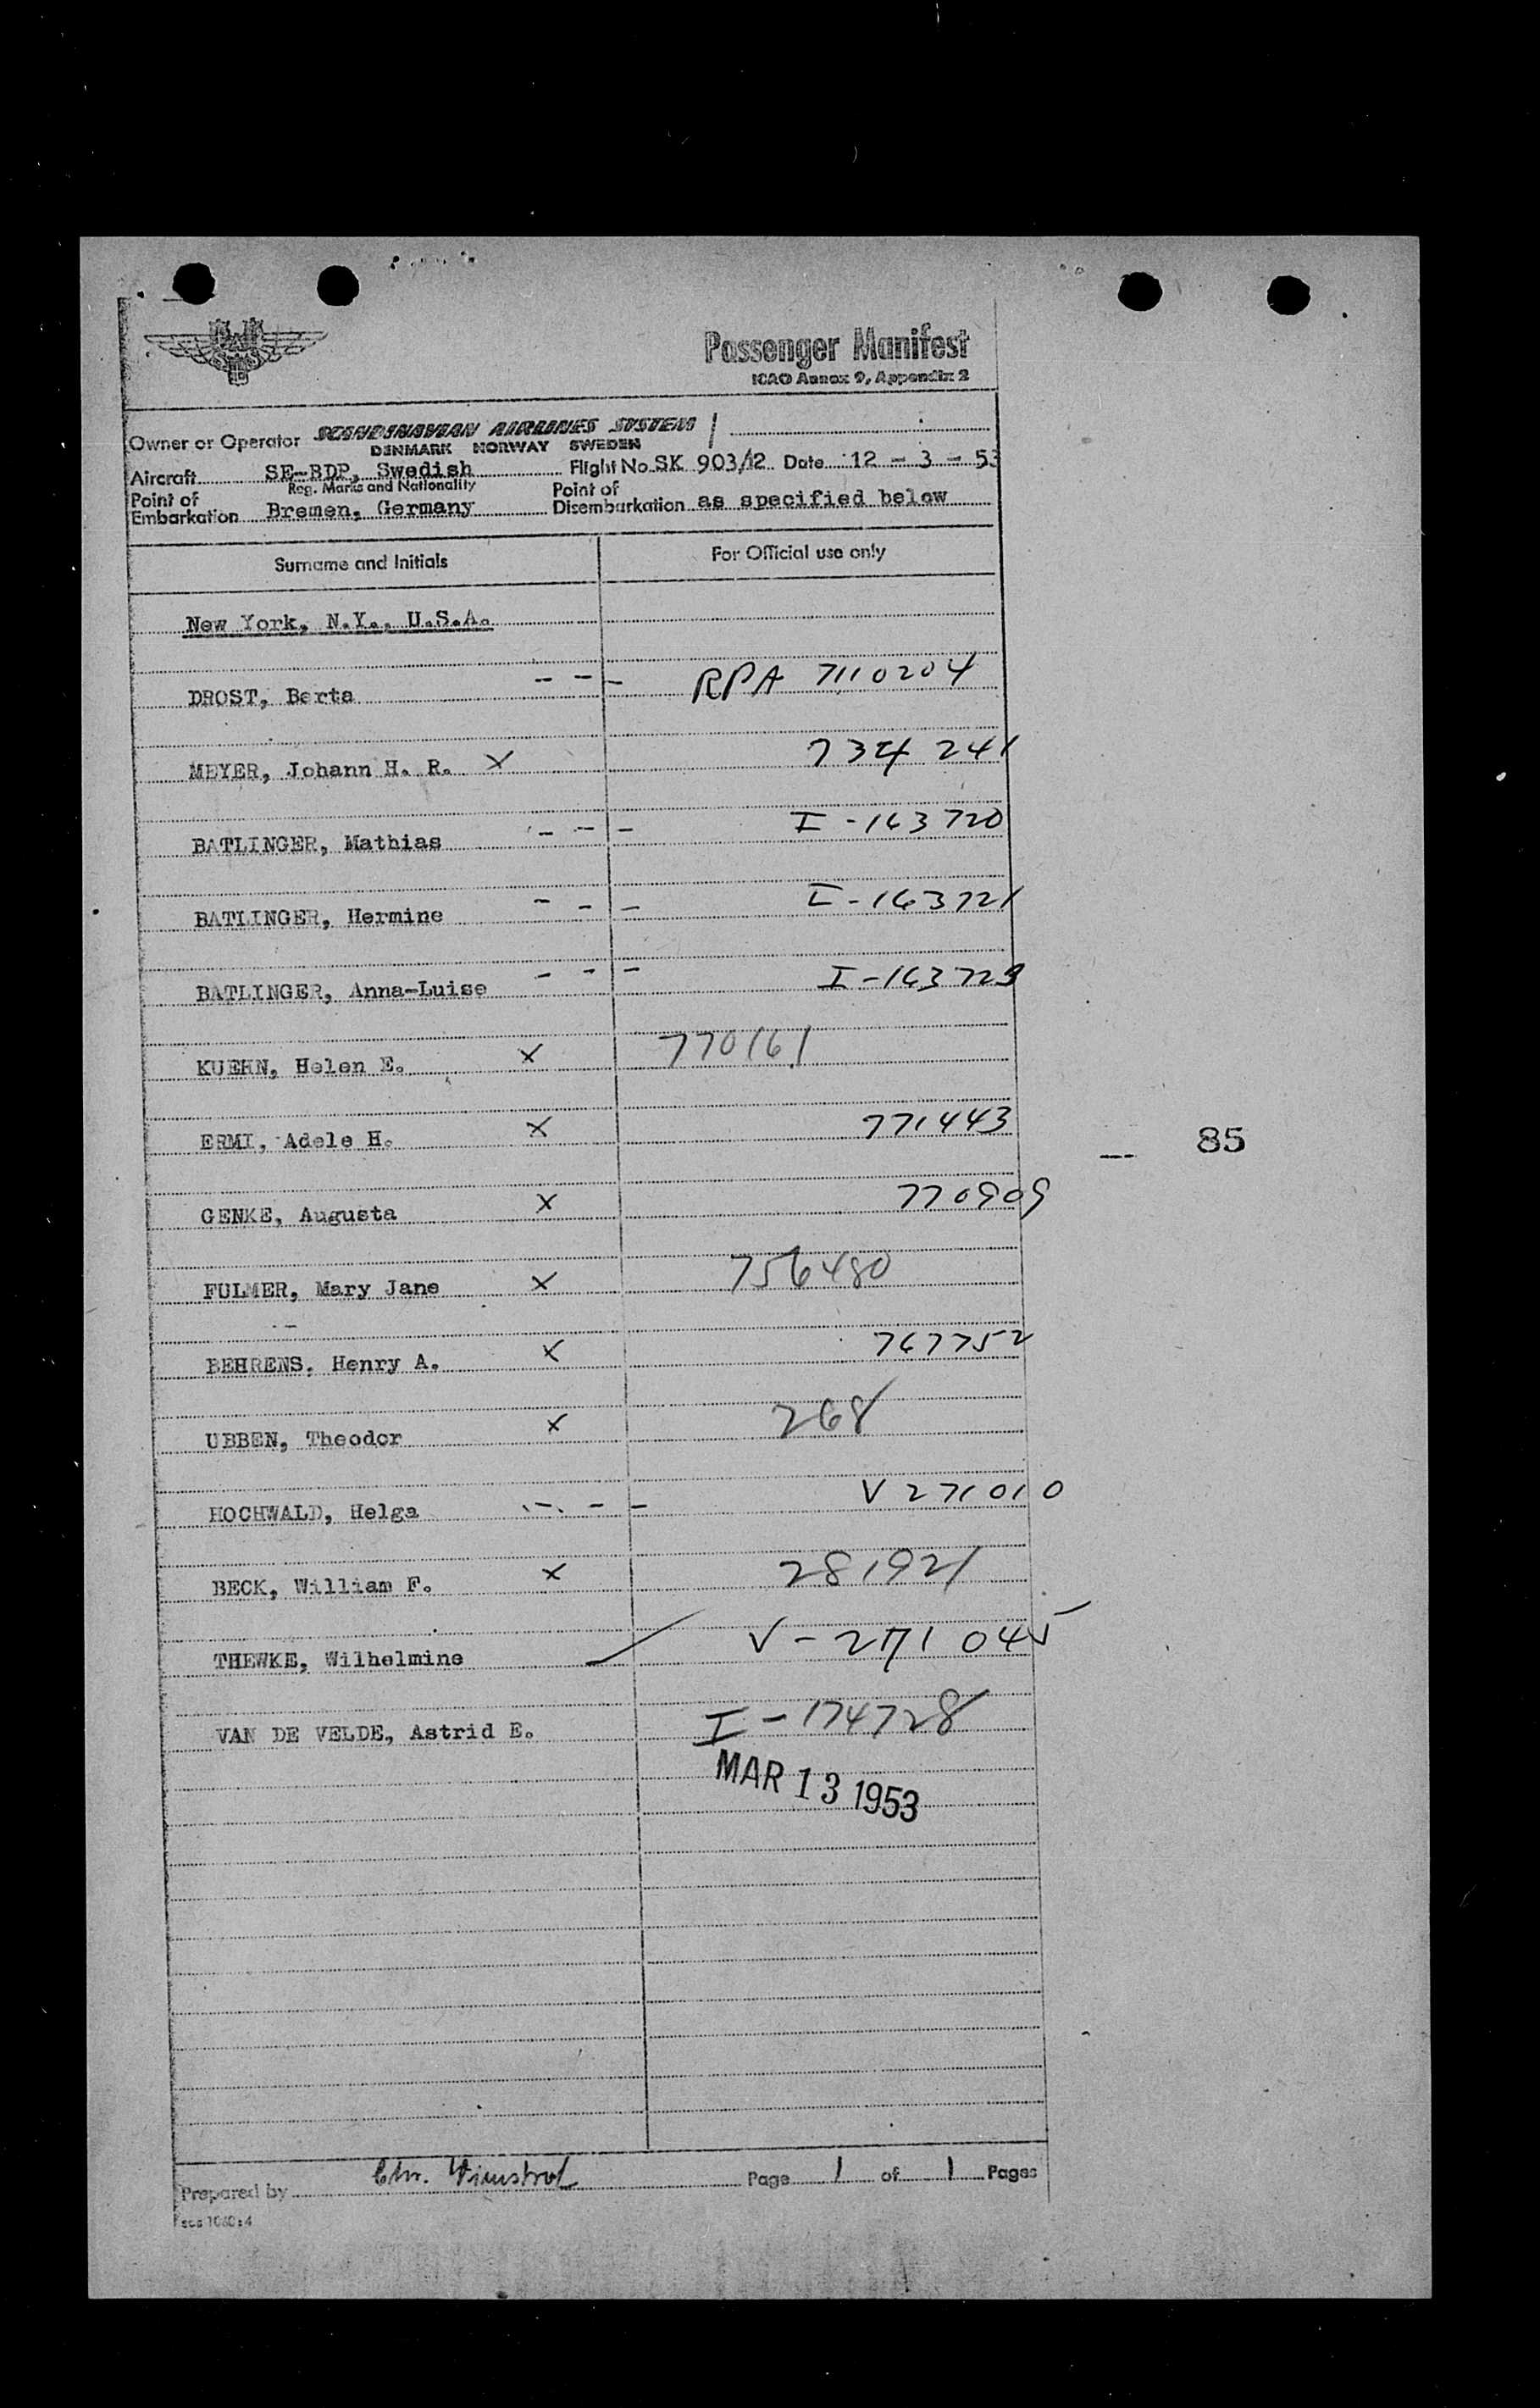 SAS
Passenger Manifest
ICAO Annex 9, Appendix 2
Owner or Operator SCANDINAVIAN AIRLINES SYSTEM
DENMARK NORWAY SWEDEN
Aircraft SE-BDP, Swedish Flight No. SK 903/12 Date 12 - 3 - 53
Reg. Marks and Nationality
Point of Embarkation Bremen, Germany Point of Disembarkation as specified below
Surname and Initials For Official use only
New York, N.Y., U.S.A.
DROST, Berta - - - RPA 7110204
MEYER, Johann H. R. X 734 241
BATLINGER, Mathias - - - I-163720
BATLINGER, Hermine - - - I-163721
BATLINGER, Anna-Luise - - - I-163723
KUEHN, Helen E. X 770161
ERMI, Adele H. X 771443
85
GENKE, Augusta X 770909
FULMER, Mary Jane X 756480
BEHRENS, Henry A. X 767752
UBBEN, Theodor X 268
HOCHWALD, Helga - - - V 271010
BECK, William F. X 281921
THEWKE, Wilhelmine V-271 045
VAN DE VELDE, Astrid E. I-174728
MAR 13 1953
Prepared by Chr. Page 1 of 1 Pages